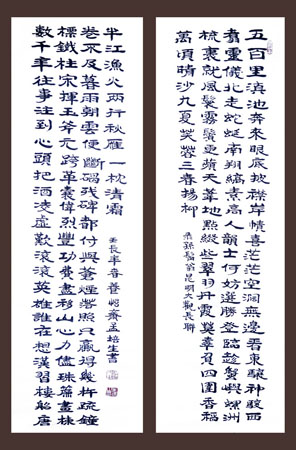 五百里滇池奔來眼底披襟岸幘喜茫茫空闊無邊看東驤神駿西
翥靈儀北走蜿蜒南翔縞素高人韻士何妨選勝登臨趁蟹嶼螺洲
梳裹就風鬟霧鬢更蘋天葦地點綴些翠羽丹霞莫辜負四圍香稻
萬頃晴沙九夏芙蓉三春楊柳
孫髯翁昆明大觀長聯
數千年往事注到心頭把酒凌虛歎滾滾英雄誰在想漢習樓船唐
標鐵柱宋揮玉斧元跨革囊偉烈豐功費盡移山心力儘珠簾畫棟
卷不及暮雨朝雲便斷碣殘碑都付與蒼煙落照只贏得幾杵疏鐘
半江漁火兩行秋雁一枕清霜
壬辰年春齋孟培生書